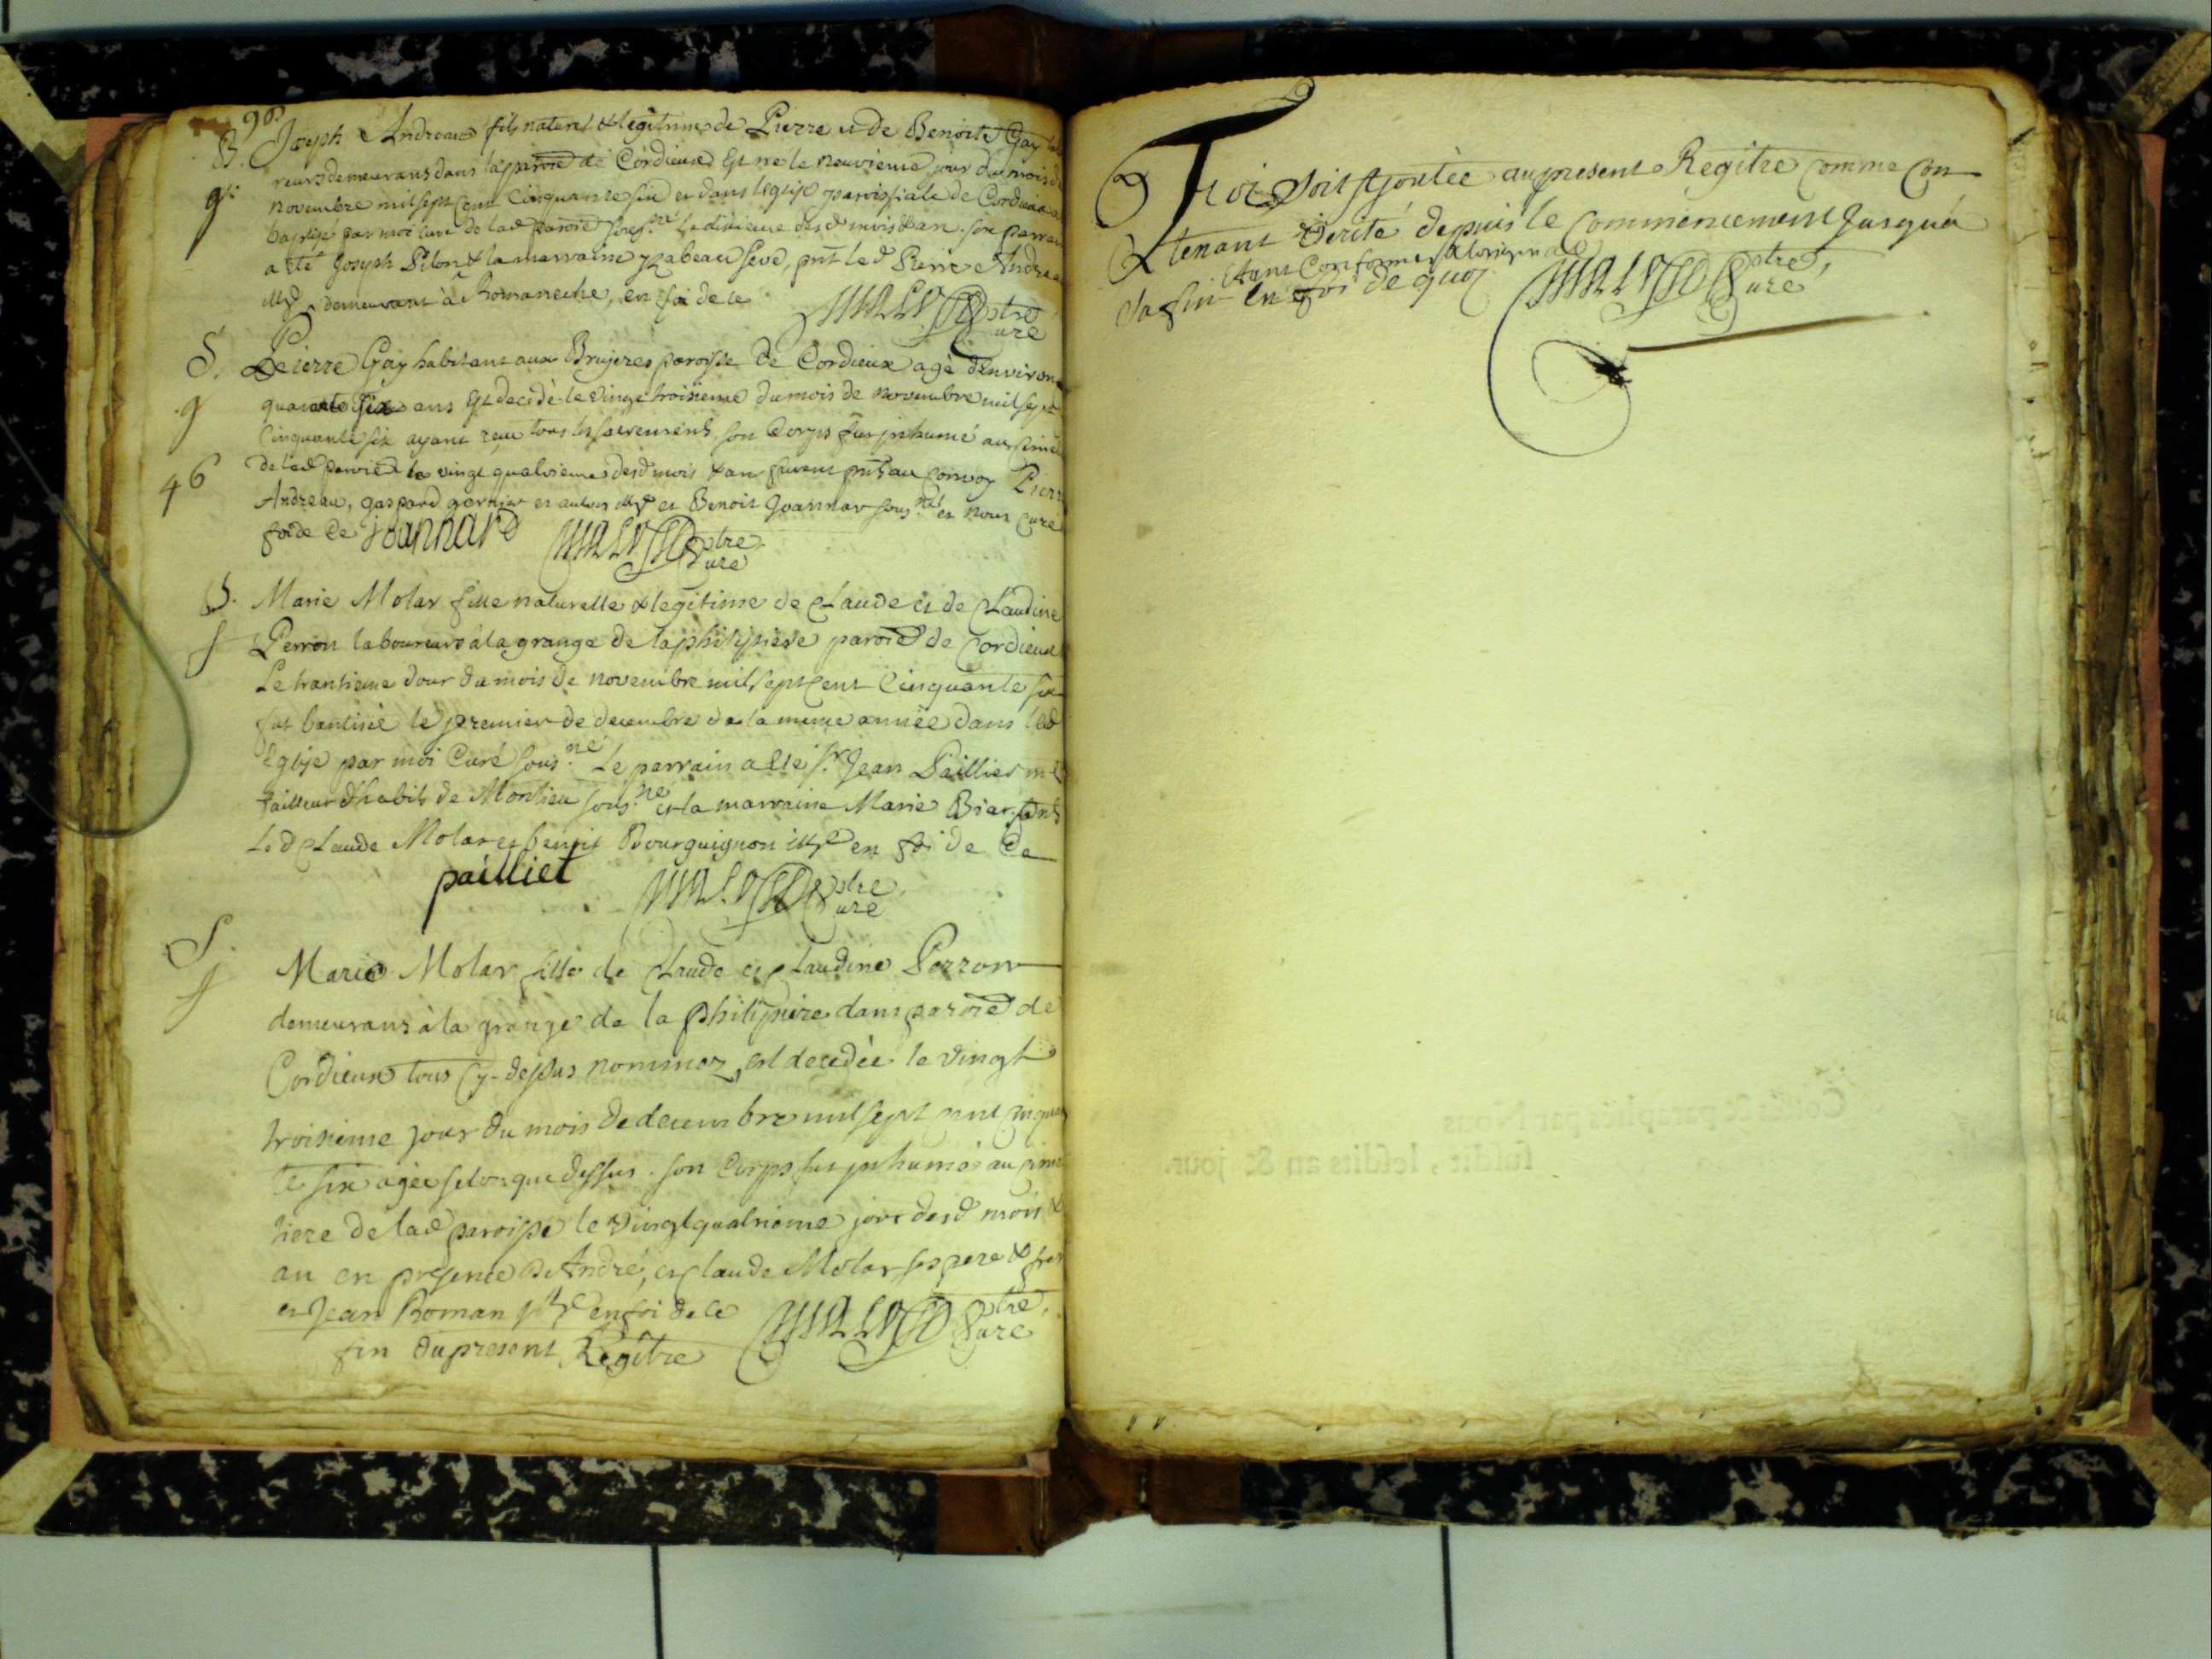 B. Joseph Andreau fils naturel & legitime de Pierre et de Benoite Gay
g. reurs demeurans dans la paroie de Cordieux Est ne le neuvieme jour du mois de
novembre mil sept cent Cinquante six et dans leglise paroissiale de Cordieux
baptise par moi Curé de lad paroie sous.né le dixieme desd mois & an. son parrain
a été Joseph Pilon & la marraine yzabeau Seve, pnt led Pierre Andreau
illé demeurant à Romaneche, en foi de ce
ptre
Curé
S. Pierre Gay habitant aux Brujeres paroisse de Cordieux agé d'Environ
g quarante six ans Est decedé le Vingt troisieme du mois de novembre mil sept
Cinquante six ayant reçu tous les sacremens, son Corps fut jnhumé au Cime
46 de lad paroie le vingt quatrieme desd mois & an furent pnts au Convoy Pierr
Andreau, gaspard garnier et autres illé et Benoit Joannar sous.né et nous Curé
foi de Ce Joannard
ptre
Curé
B. Marie Molar fille naturelle & legitime de Claude et de Claudine
f Perron laboureurs à la grange de la philipiere paroie de Cordieux
Le trantieme Jour du mois de novembre mil sept Cent Cinquante six
fut baptisée le premier de decembre de la meme année dans lad
Eglise par moi Curé sous.né Le parrain a été sr Jean Paillier me
tailleur d'habits de Monlieu sous.né et la marraine Marie Biar pnts
Led Claude Molar et benoit Bourguignon illé en foi de Ce
pailliet
ptre
Curé
S.
f Marie Molar fille de Claude et Claudine Perron
demeurans à la grange de la Philipiere dans paroie de
Cordieux tous Cy-dessus nommez, est decedée le vingt
troisieme jour du mois de decembre mil sept cent cinquan
te six agée selon que dessus. son Corps fut jnhumé au cime
tiere de lad paroisse le vingt quatrieme jour desd mois &
an en presence de André, et Claude Molar ses pere & frer
et Jean Roman illé en foi de ce
ptre
Curé
fin du present Regître
Foi soit Ajoutée au present Regitre Comme Con
tenant Verité depuis le Commencement Jusqu'à
Etant Conforme à l'original
la fin en foi de quoi
ptre
Curé